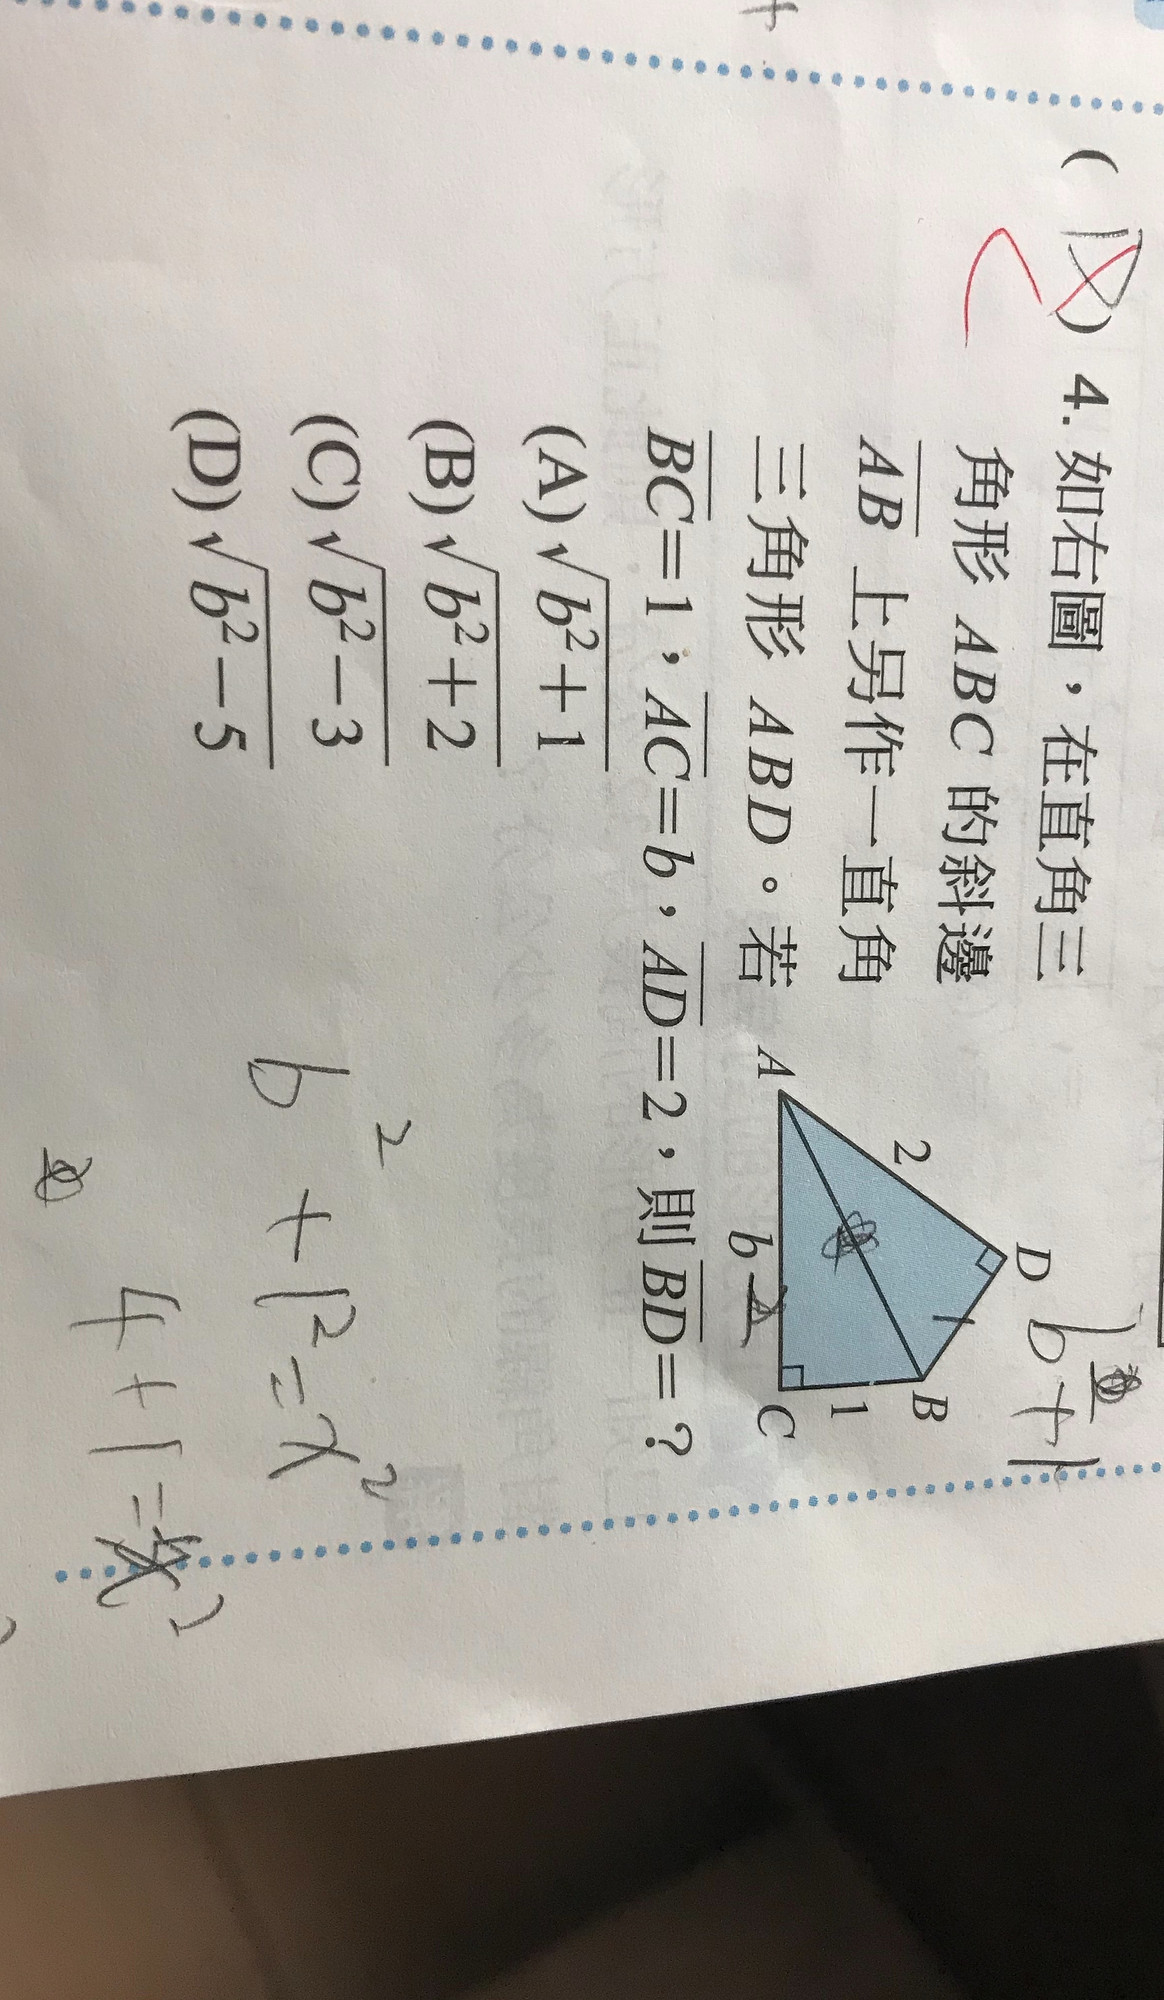 ( D ) 4. 如右圖，在直角三
角形 ABC 的斜邊
AB 上另作一直角
三角形 ABD。若
BC=1，AC=b，AD=2，則 BD=？
(A) √b²+1
(B) √b²+2
(C) √b²−3
(D) √b²−5
C
A
2
D
B
1
C
b
b+1
b² + 1² = x²
4+1=